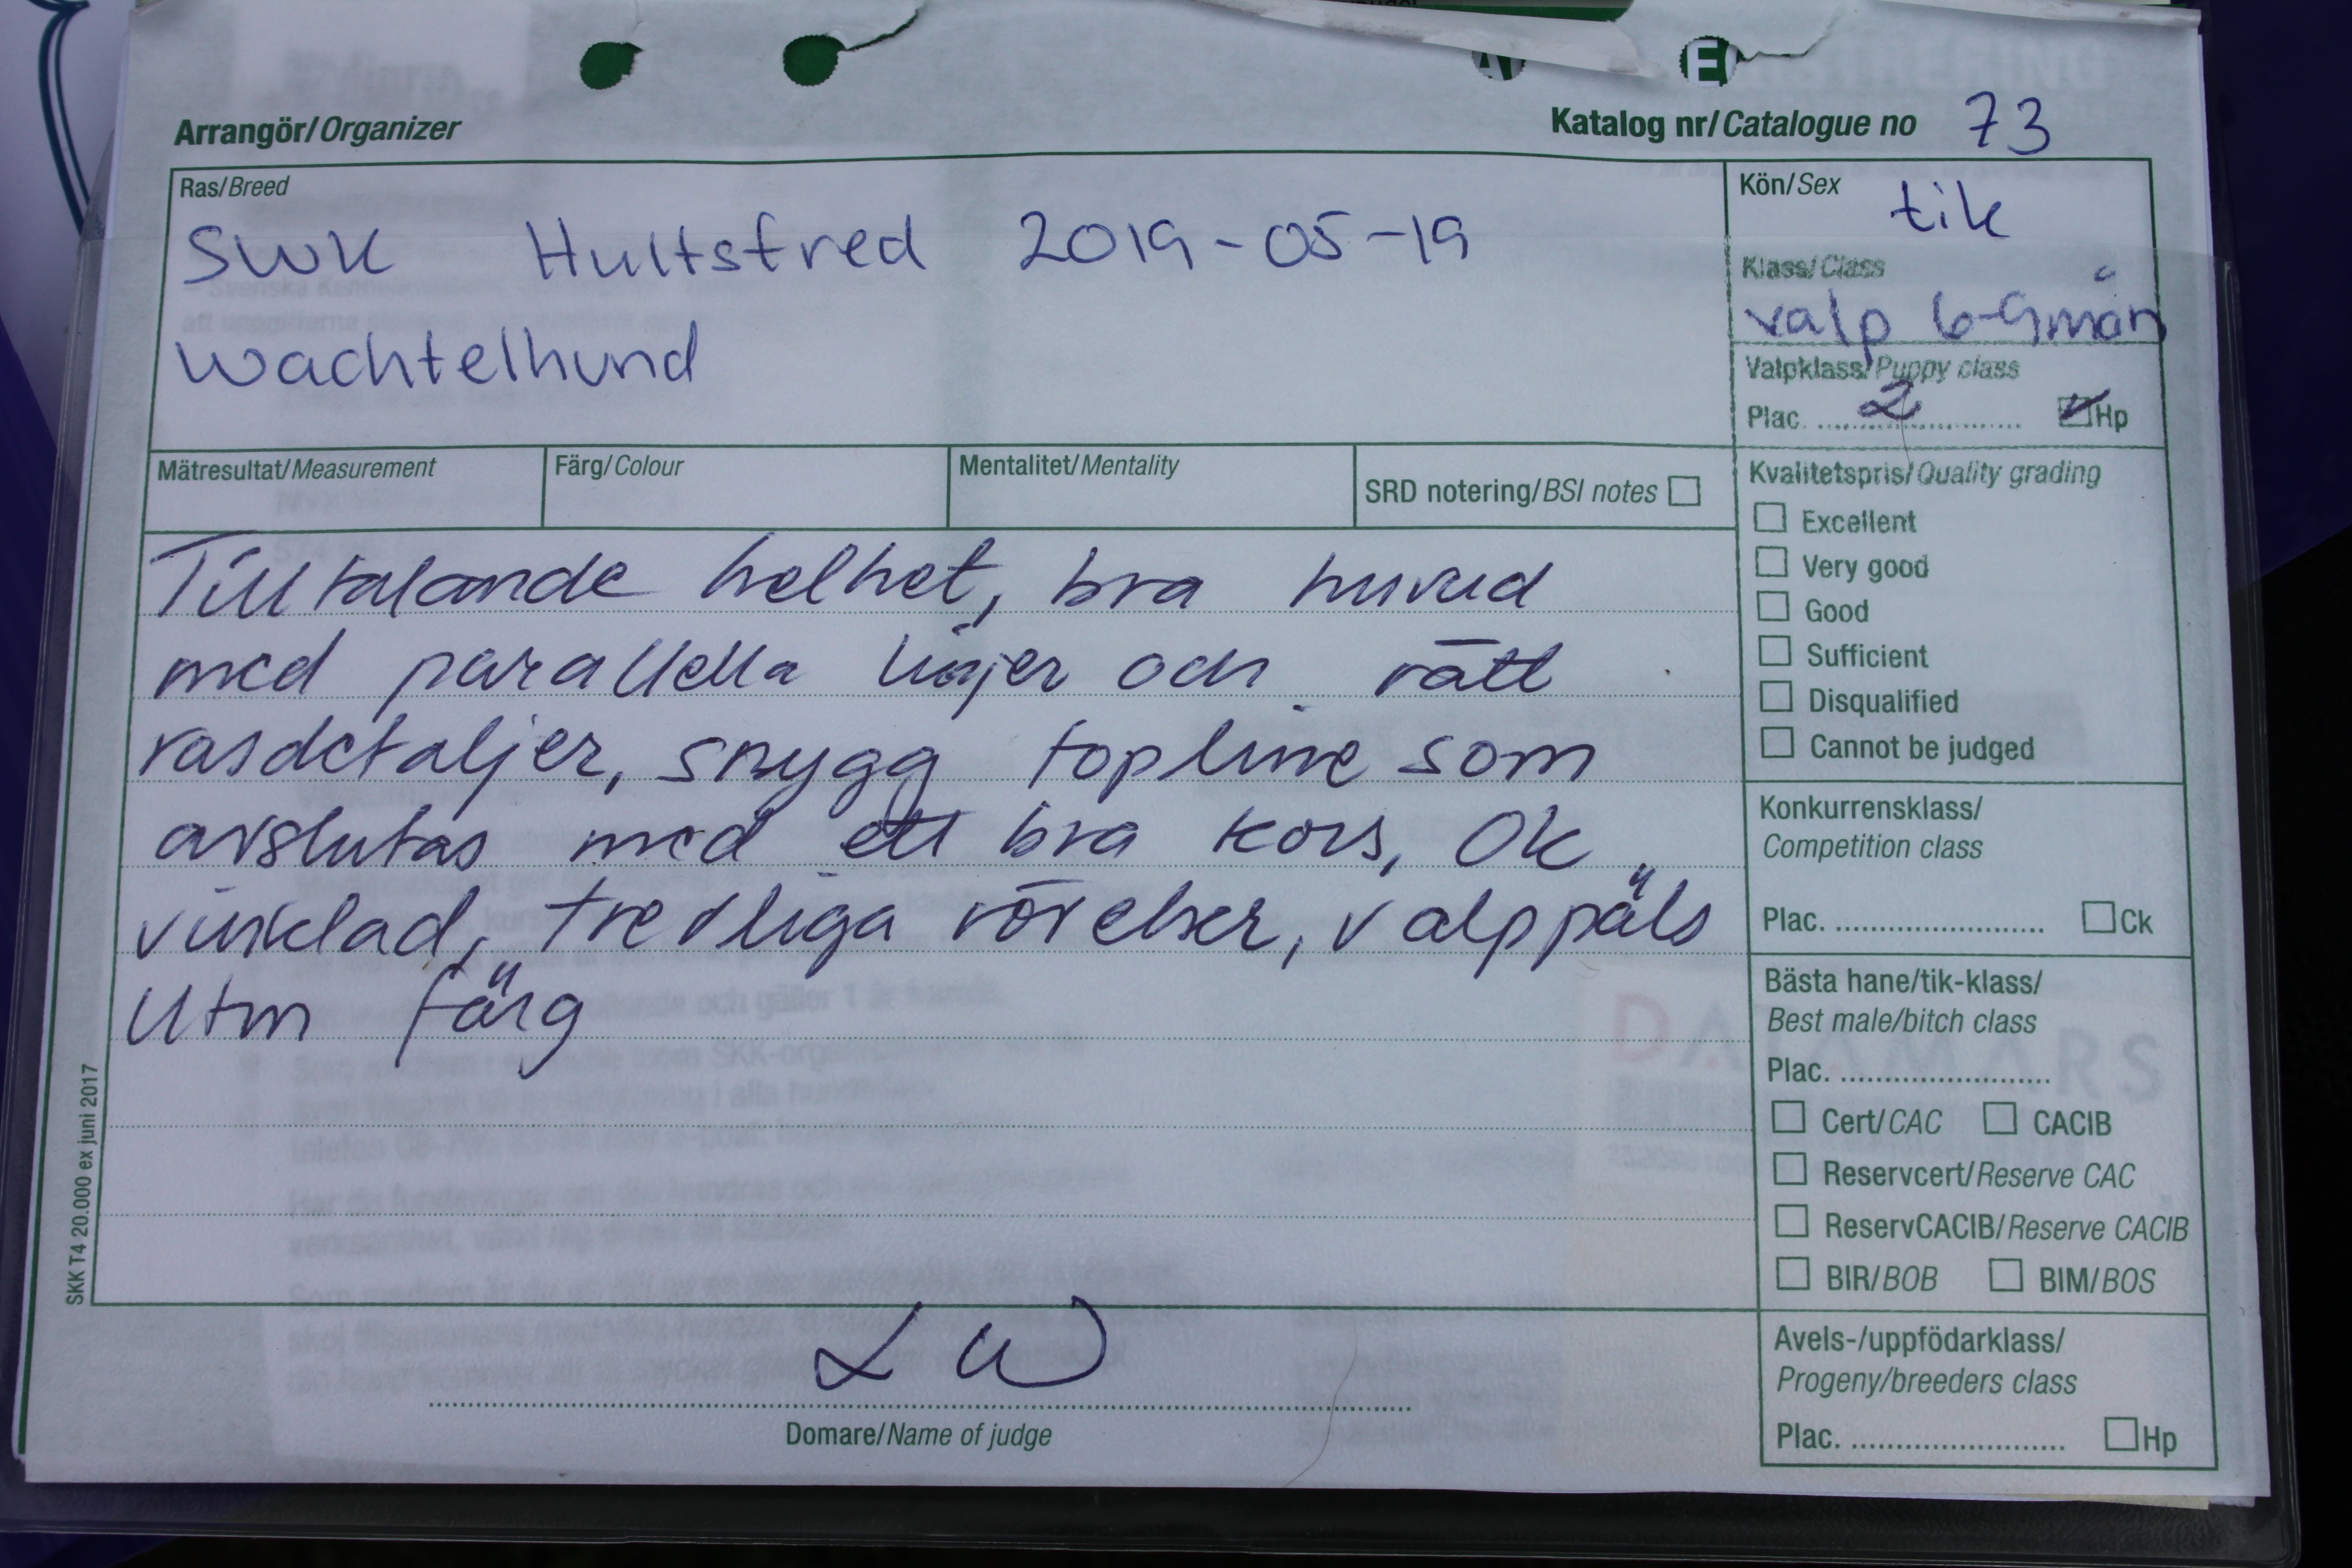 Arrangör/Organizer
Katalog nr/Catalogue no 73
Ras/Breed
SWK Hultsfred 2019-05-19
Wachtelhund
Kön/Sex tik
Klass/Class
valp 6-9mån
Valpklass/Puppy class
Plac. 2 Hp
Mätresultat/Measurement
Färg/Colour
Mentalitet/Mentality
SRD notering/BSI notes
Tilltalande helhet, bra huvud
med parallella linjer och rätt
rasdetaljer, snygg topline som
avslutas med ett bra kors, Ok
vinklad, trevliga rörelser, valppäls
Utm färg
Kvalitetspris/Quality grading
Excellent
Very good
Good
Sufficient
Disqualified
Cannot be judged
Konkurrensklass/
Competition class
Plac. Ck
Bästa hane/tik-klass/
Best male/bitch class
Plac.
Cert/CAC CACIB
Reservcert/Reserve CAC
ReservCACIB/Reserve CACIB
BIR/BOB BIM/BOS
Avels-/uppfödarklass/
Progeny/breeders class
Plac. Hp
LW
Domare/Name of judge
SKK T4 20.000 ex juni 2017
DATAMARS